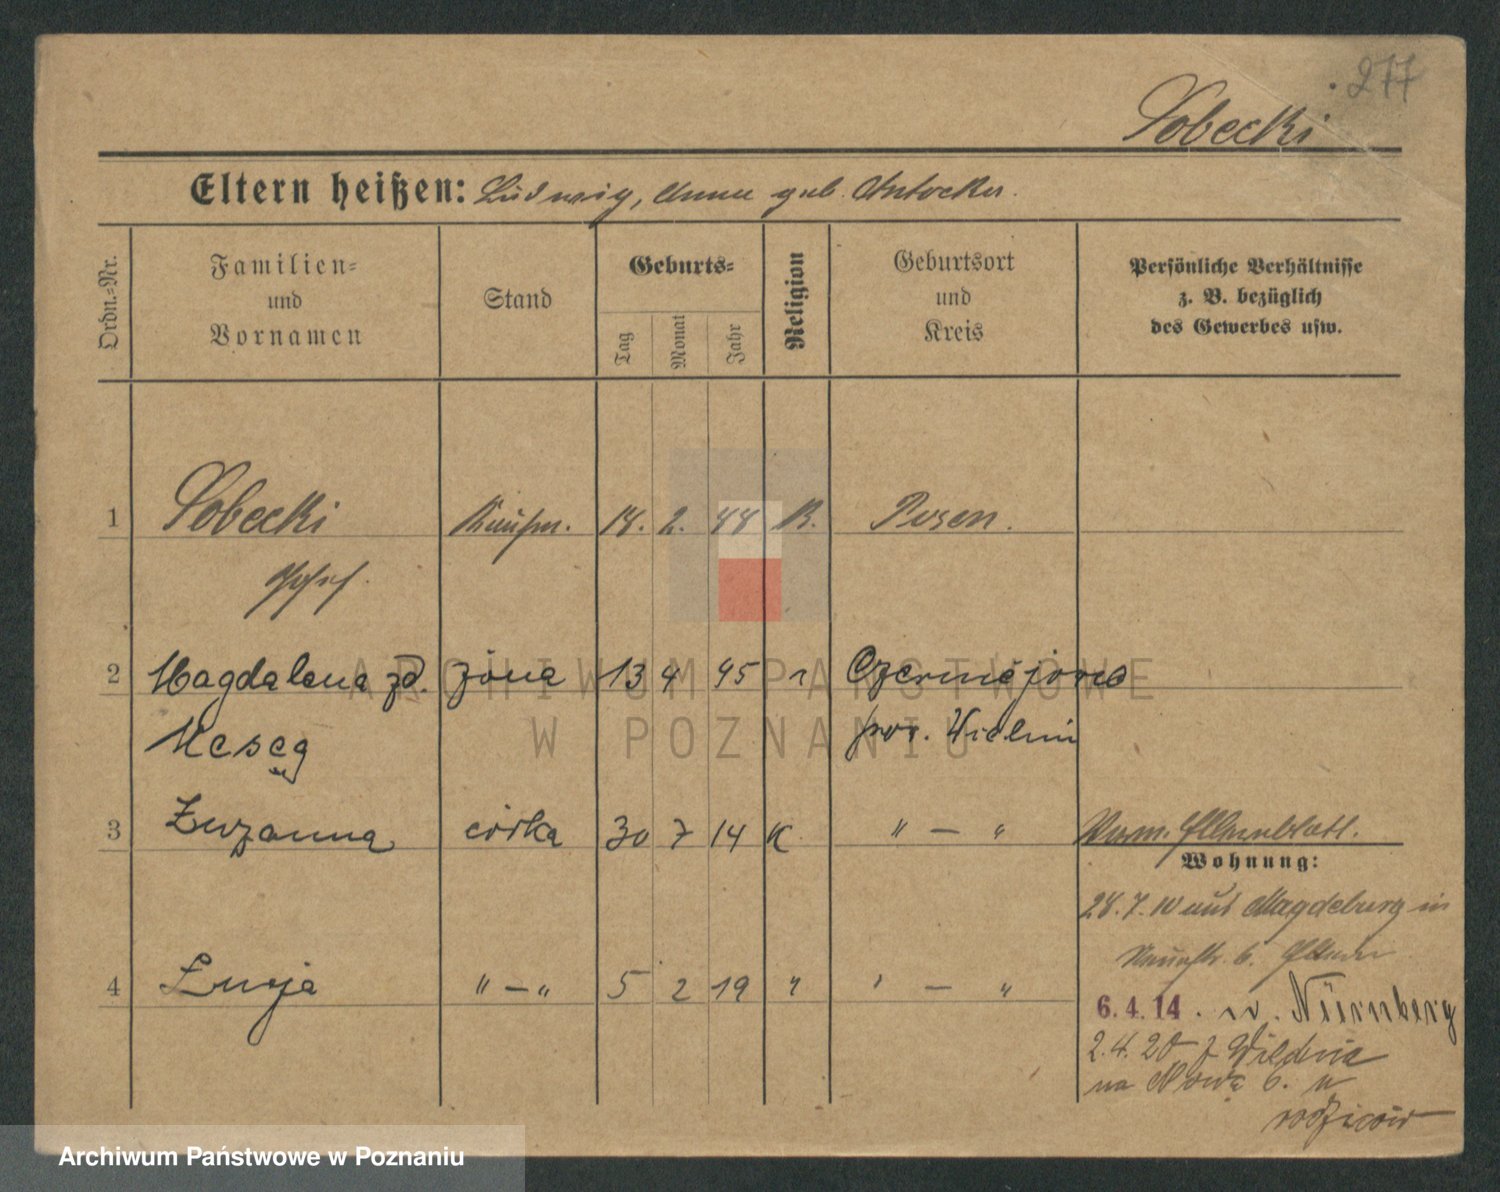 277
Sobecki
Eltern heißen: Ludwig, Anna geb. Antocka.
Ordn.=Nr.
Familien=
und
Vornamen
Stand
Geburts=
Tag
Monat
Jahr
Religion
Geburtsort
und
Kreis
Persönliche Verhältnisse
z. B. bezüglich
des Gewerbes usw.
1 Sobecki Kaufm. 18. 2. 88 K. Posen.
Josef.
2 Magdalena zd. żona 13 4 95 " Czerniejowo
Meseg pow.
3 Zuzanna córka 30 7 14 K " — "
Verm. Elternblatt.
Wohnung:
28.7.10 aus Magdeburg in
6. Eltern
4 Łucja " — " 5 2 19 " " — "
6.4.14. n. Nürnberg
2.4.20 z
na Nową 6. u
rodziców
ARCHIWUM PAŃSTWOWE
W POZNANIU
Archiwum Państwowe w Poznaniu